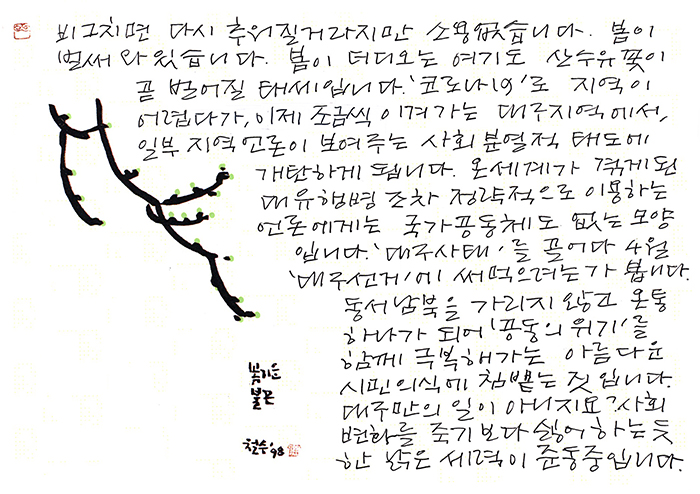 비그치면 다시 추워질거라지만 소용없습니다. 봄이
벌써 와있습니다. 봄이 더디오는 여기도 산수유꽃이
곧 벌어질 태세입니다. '코로나19'로 지역이
어렵다가, 이제 조금씩 이겨가는 대구지역에서,
일부 지역언론이 보여주는 사회 분열적 태도에
개탄하게 됩니다. 온세계가 겪게된
대유행병조차 정략적으로 이용하는
언론에게는 국가공동체도 없는 모양
입니다. '대구사태'를 끌어다 4월
'대구선거'에 써먹으려는가 봅니다.
동서남북을 가리지 않고 온통
하나가 되어 '공동의 위기'를
함께 극복해가는 아름다운
시민의식에 침뱉는 짓입니다.
대구만의 일이 아니지요? 사회
변화를 죽기보다 싫어하는듯
한 낡은 세력이 준동중입니다.
봄기운
불끈
철수 '98